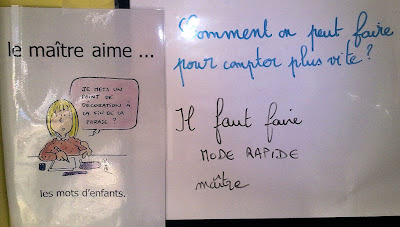 le maître aime ...
JE METS UN
POINT DE
DÉCORATION À
LA FIN DE LA
PHRASE ?
les mots d'enfants.
Comment on peut faire
pour compter plus vite ?
Il faut faire
MODE RAPIDE
maître